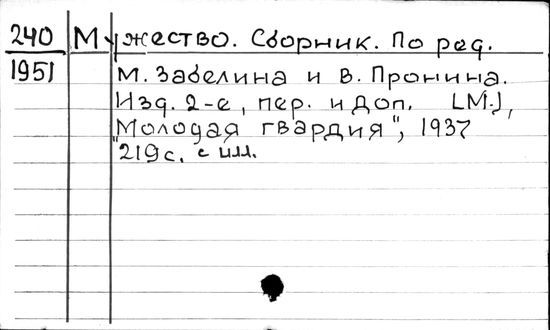 240 Мужество. Сборник. По ред.
1951 М. Забелина и В. Пронина.
Изд. 2-е, пер. и доп. [М.],
"Молодая гвардия", 1937
219 с. с илл.